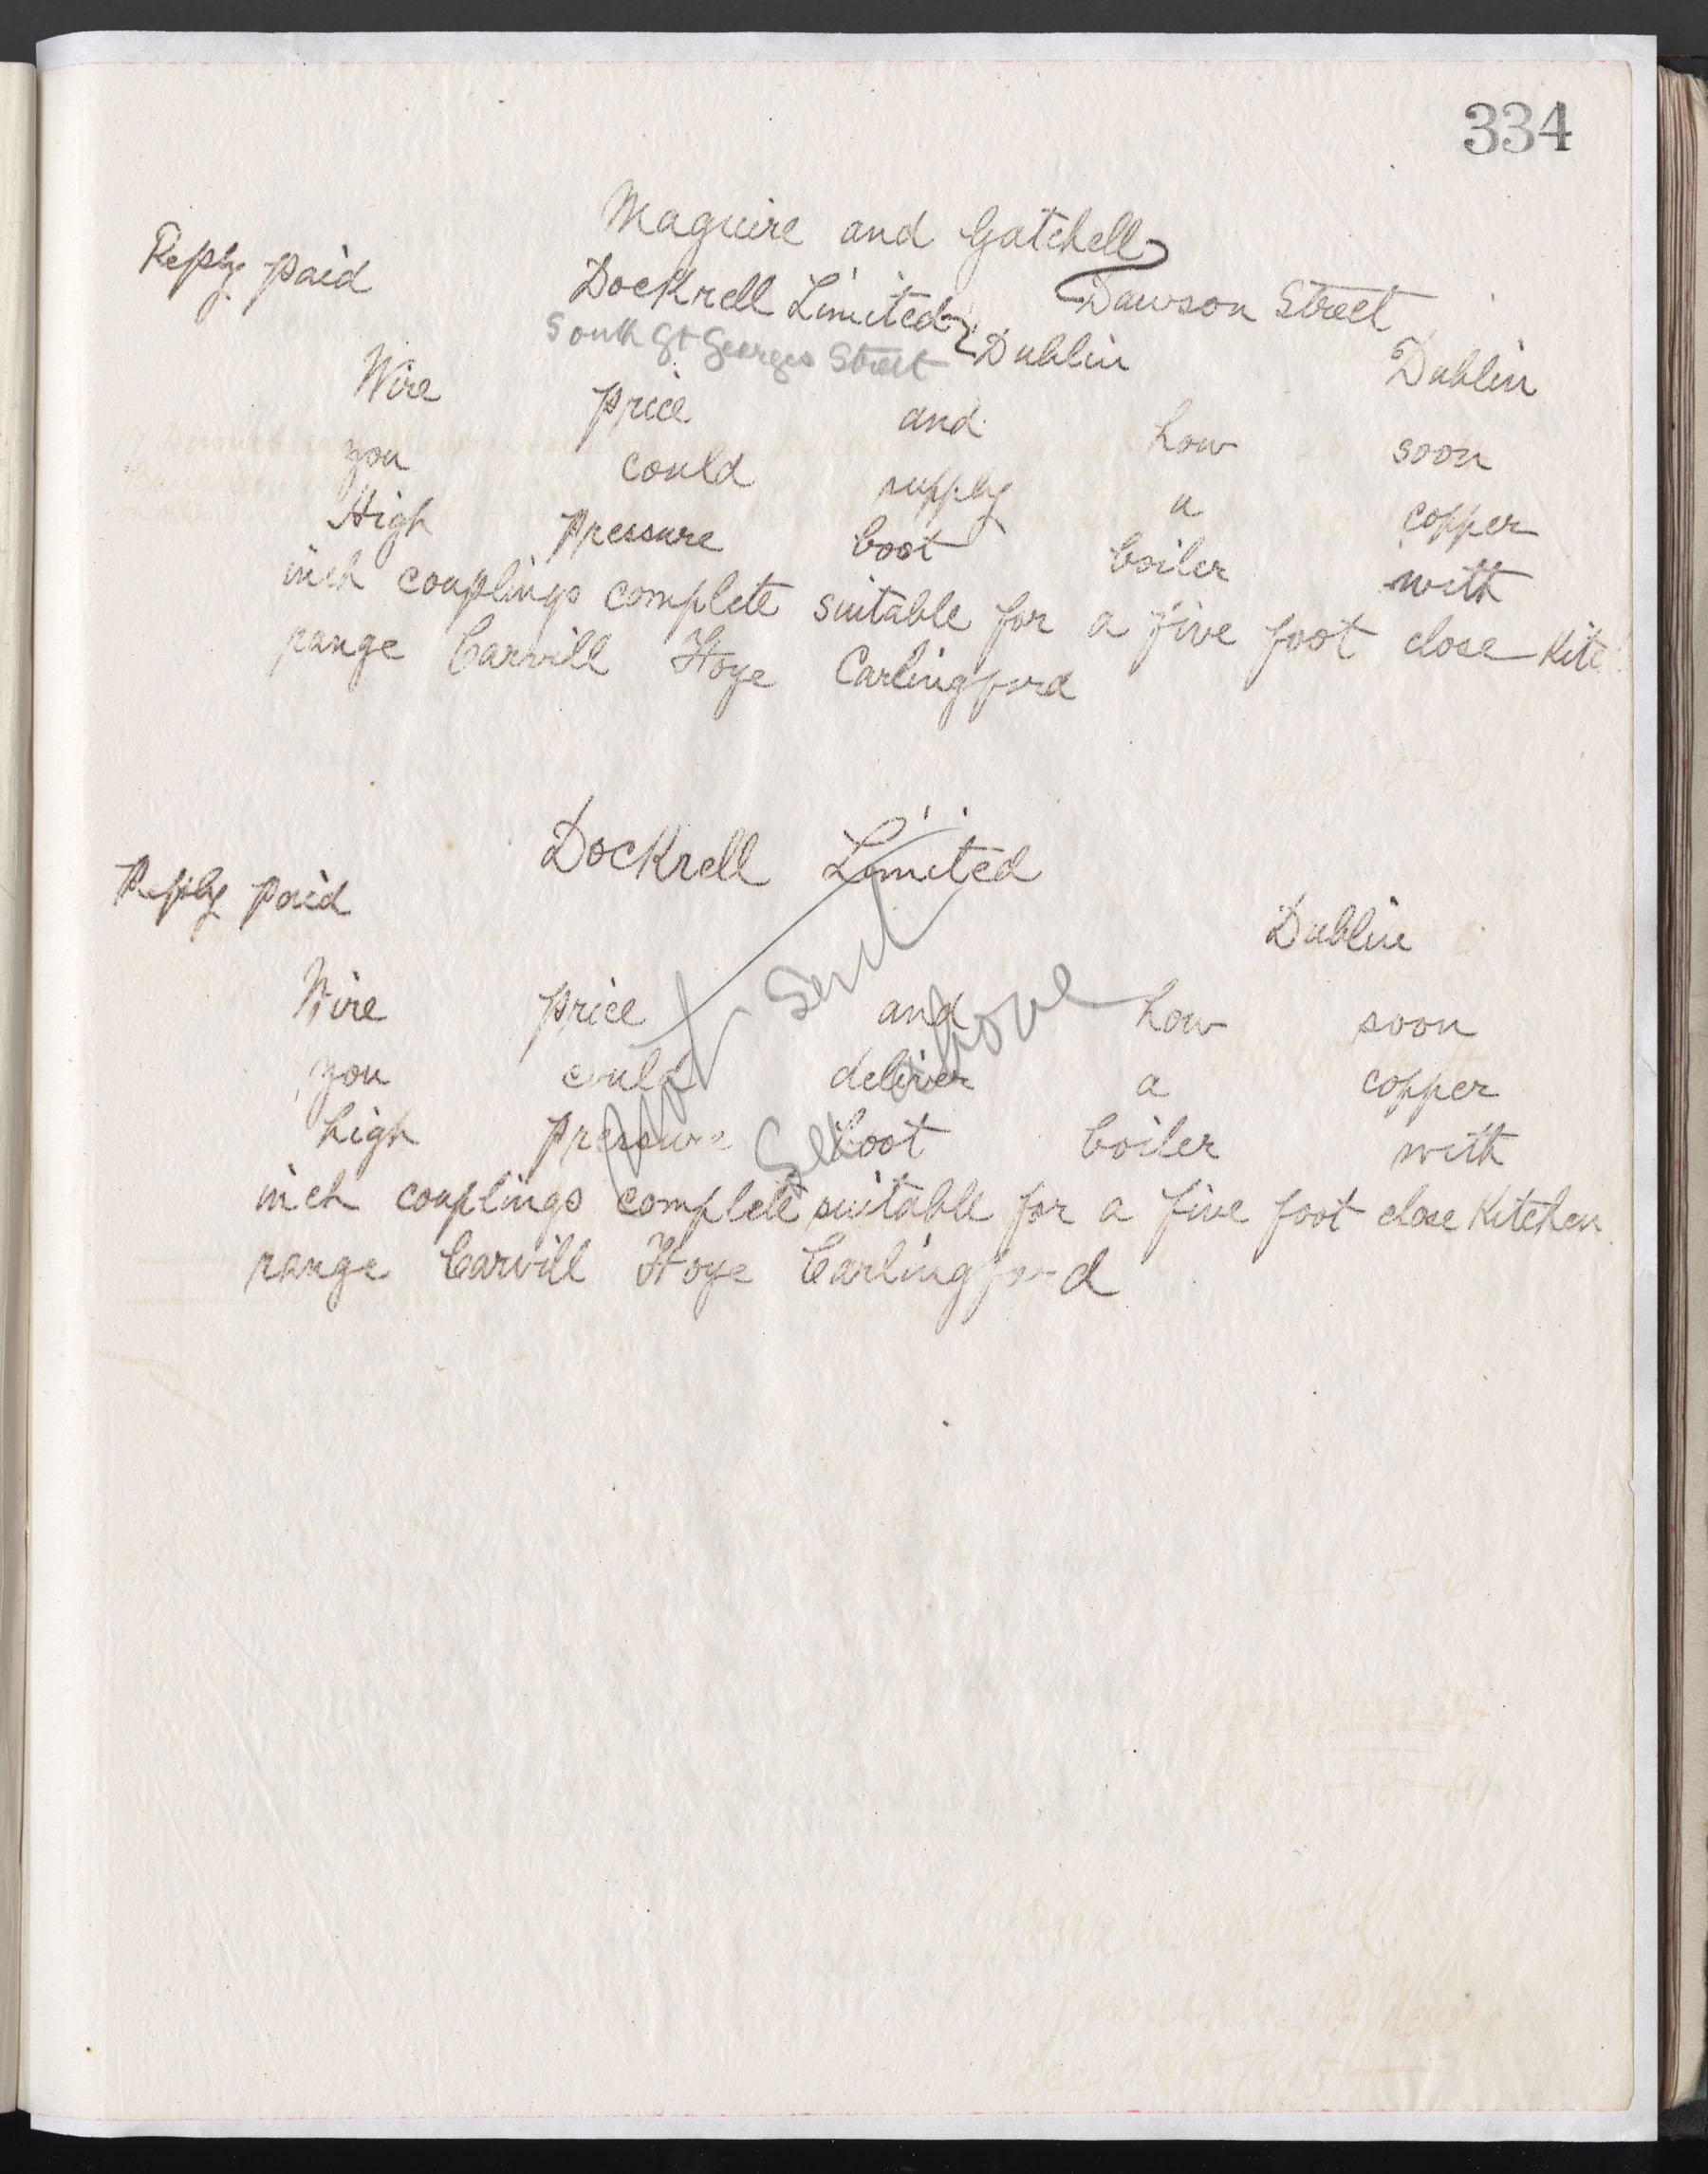 334
Maguire and Gatchell
Reply paid
Dawson Street
Dockrell Limited
South Gt Georges Street
Dublin
Dublin
Wire price and how soon
you could supply a copper
High pressure boot boiler with
inch couplings complete suitable for a five foot close Kitc
range Carvill Hoye Carlingford
Dockrell Limited
Reply paid
Dublin
Wire price and how soon
you could deliver a copper
high pressure boot boiler with
inch couplings complete suitable for a five foot close Kitchen
range Carvill Hoye Carlingford
Not sent
See above